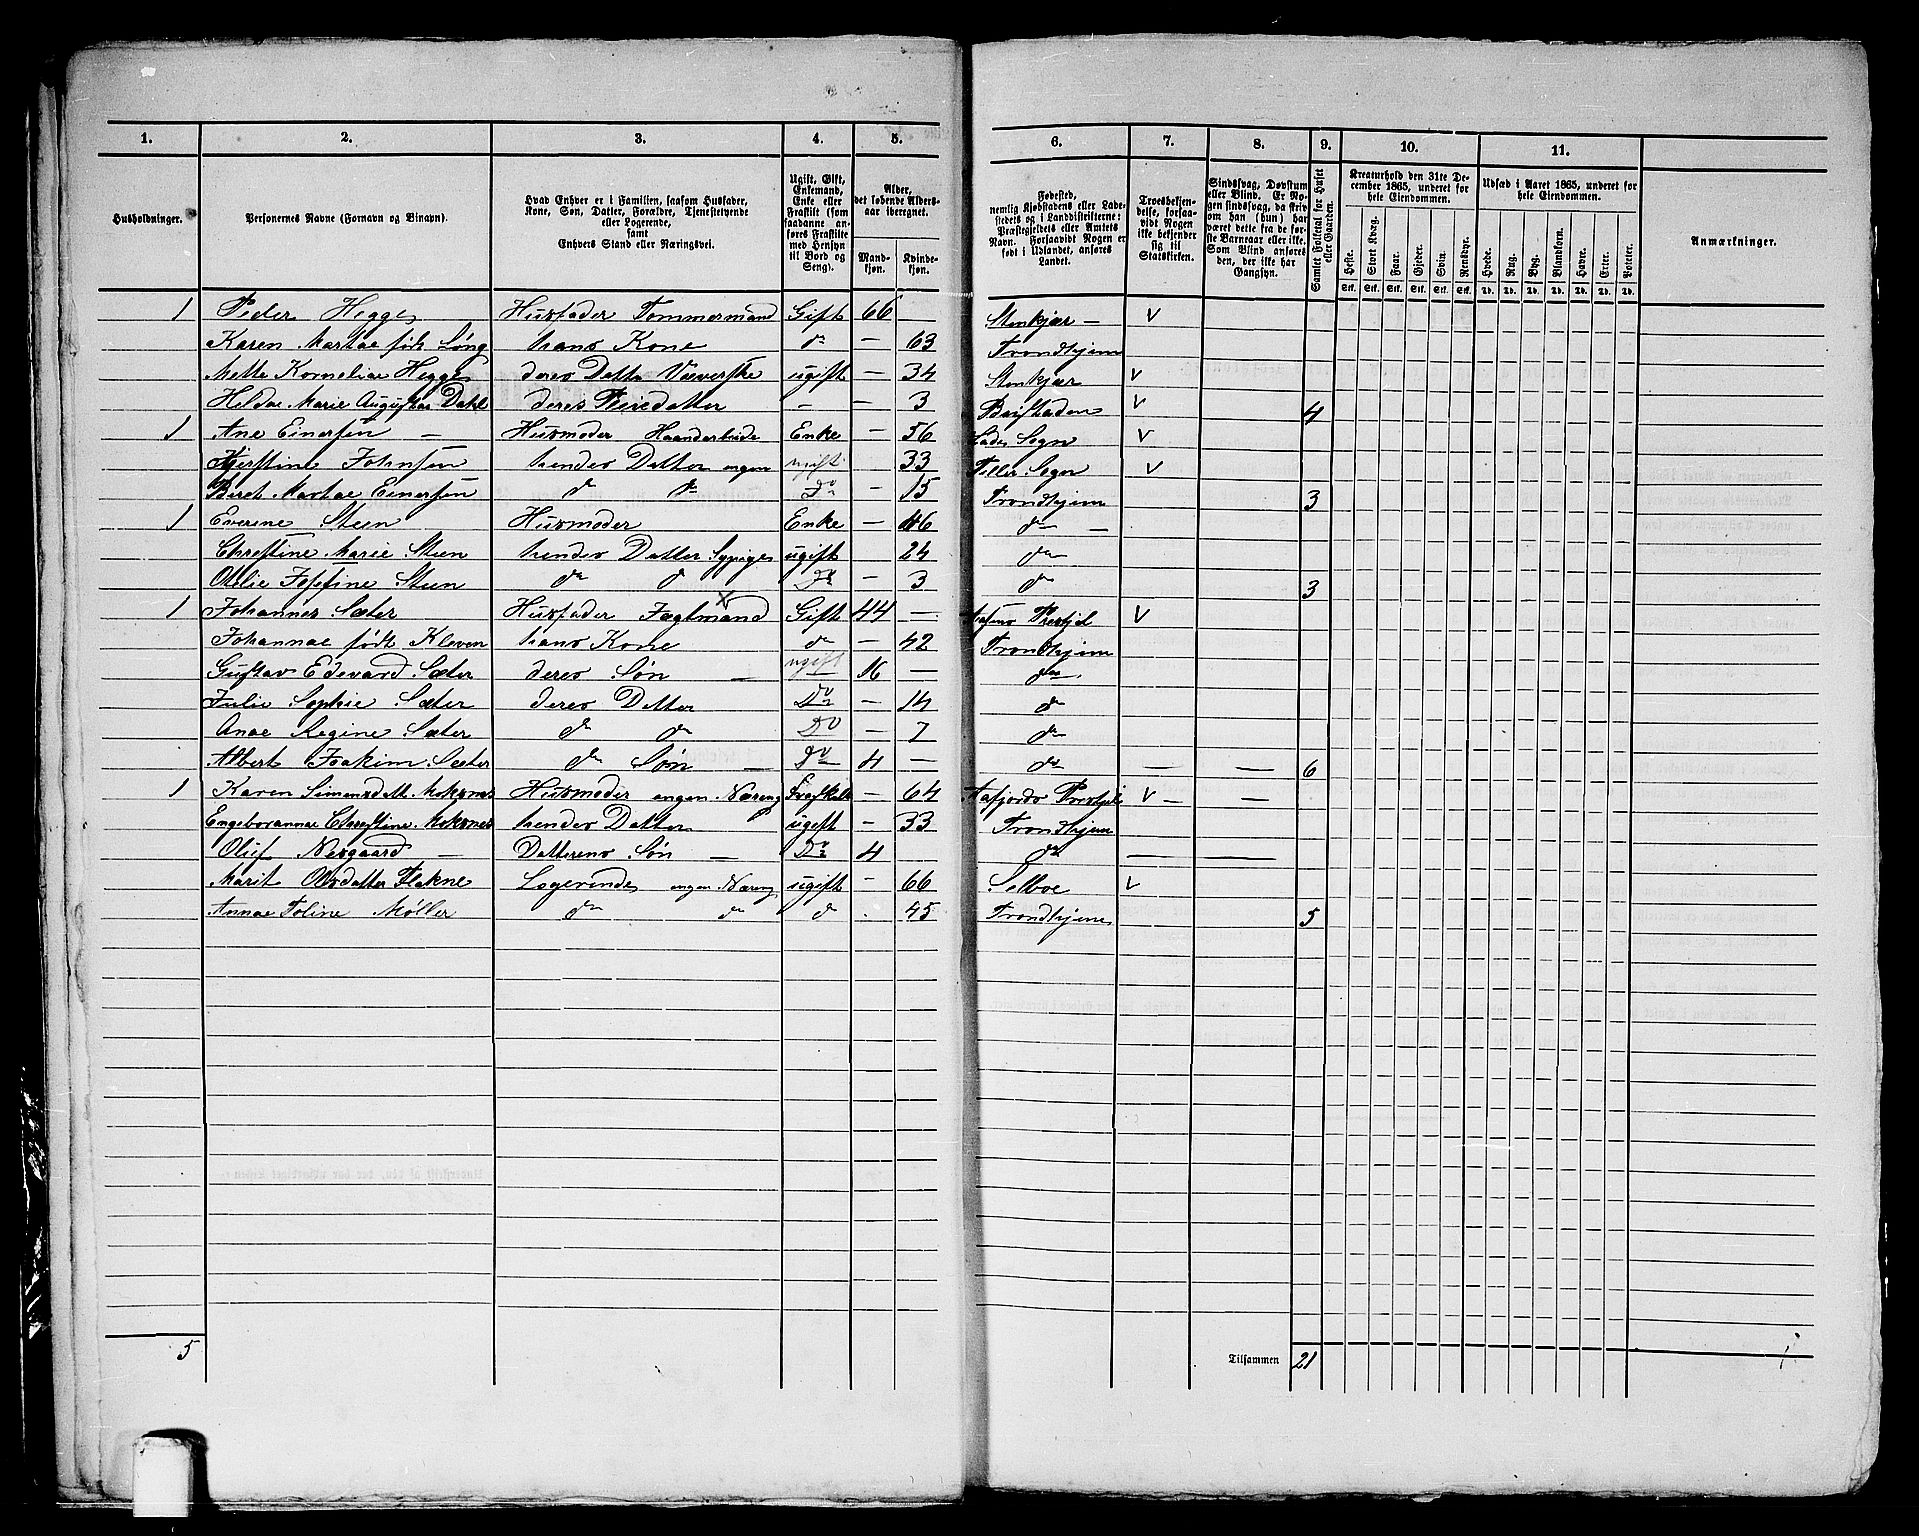 1. 2. 3. 4. 5. 6. 7. 8. 9. 10. 11.
Husholdninger.
Personernes Navne (Fornavn og Binavn).
Hvad Enhver er i Familien, saasom Husfader, Kone, Søn, Datter, Forældre, Tjenestetyende eller Logerende, samt Enhvers Stand eller Næringsvei.
Ugift, Gift, Enkemand, Enke eller Fraskilt (som saadanne anføres Fraskilte med Hensyn til Bord og Seng).
Alder, det løbende Aldersaar iberegnet.
Mandkjøn. Kvindekjøn.
Fødested, nemlig Kjøbstadens eller Ladestedets og i Landdistrikterne: Præstegjeldets eller Amtets Navn. Forsaavidt Nogen er født i Udlandet, anføres Landet.
Troesbekjendelse, forsaavidt Nogen ikke bekjender sig til Statskirken.
Sindssvag, Døvstum eller Blind. Er Nogen sindssvag, da skrives om han (hun) har været dette fra de første Barneaar eller ikke. Som Blind anføres den, der ikke har Gangsyn.
Samlet Folketal for Huset eller Gaarden.
Kreaturhold den 31te December 1865, underet for hele Eiendommen.
Heste. Stort Kvæg. Faar. Gjeder. Svin. Rensdyr.
Stk. Stk. Stk. Stk. Stk. Stk.
Udsæd i Aaret 1865, underet for hele Eiendommen.
Hvede. Rug. Byg. Blandkorn. Havre. Erter. Poteter.
Td. Td. Td. Td. Td. Td. Td.
Anmærkninger.
1 Peder Hegge Husfader Tommermand Gift 66 — Stenkjær — V
Karen Martae født Løng hans Kone do — 63 Trondhjem
Mette Korneliae Hegge deres Datter Væverske ugift — 34 Stenkjær V
Heldae Marie Augustae Dahl deres Pleiedatter — — 3 Beistaden V 4
1 Ane Einersen — Husmoder Haanderbeide Enke — 56 Lade Sogn V
Kjerstine Johnsen hendes Datter ongen ugift — 33 Tiller Sogn V
Beret Martae Einersen do do Do — 15 Trondhjem 3
1 Everine Steen Husmoder Enke — 46 do —
Chrestine Marie Steen hendes Datter Sypige ugift 24 do
Otelie Josefine Steen do d Do — 3 do 3
1 Johannes Sæter Husfader Fægtmand Gift 44 — Aafjens Prestjel V
Johannae født Kleven hans Kone do — 42 Trondhjem
Gustav Edevard Sæter deres Søn — ugift 16 — do
Julie Sophie Sæter deres Datter Do — 14 do
Anae Regine Sæter do do Do — 7 do
Albert Joakim Sæter do Søn — Do 4 — do — — 6
1 Karen Simensdatt Moksnes Husmoder ongen Næring Fraskilt — 64 Aafjords Prestjel V — —
Engeborannae Chrestine Moksnes hendes Datter ugift — 33 Trondhjem
Oluf Nesgaard — Datterens Søn — Do 4 do — —
Marit Olsdatter Flakne Logerende ongen Næring ugift — 66 Selboe V
Annae Toline Møller do do d . 45 Trondhjem 5
5 Tilsammen 21